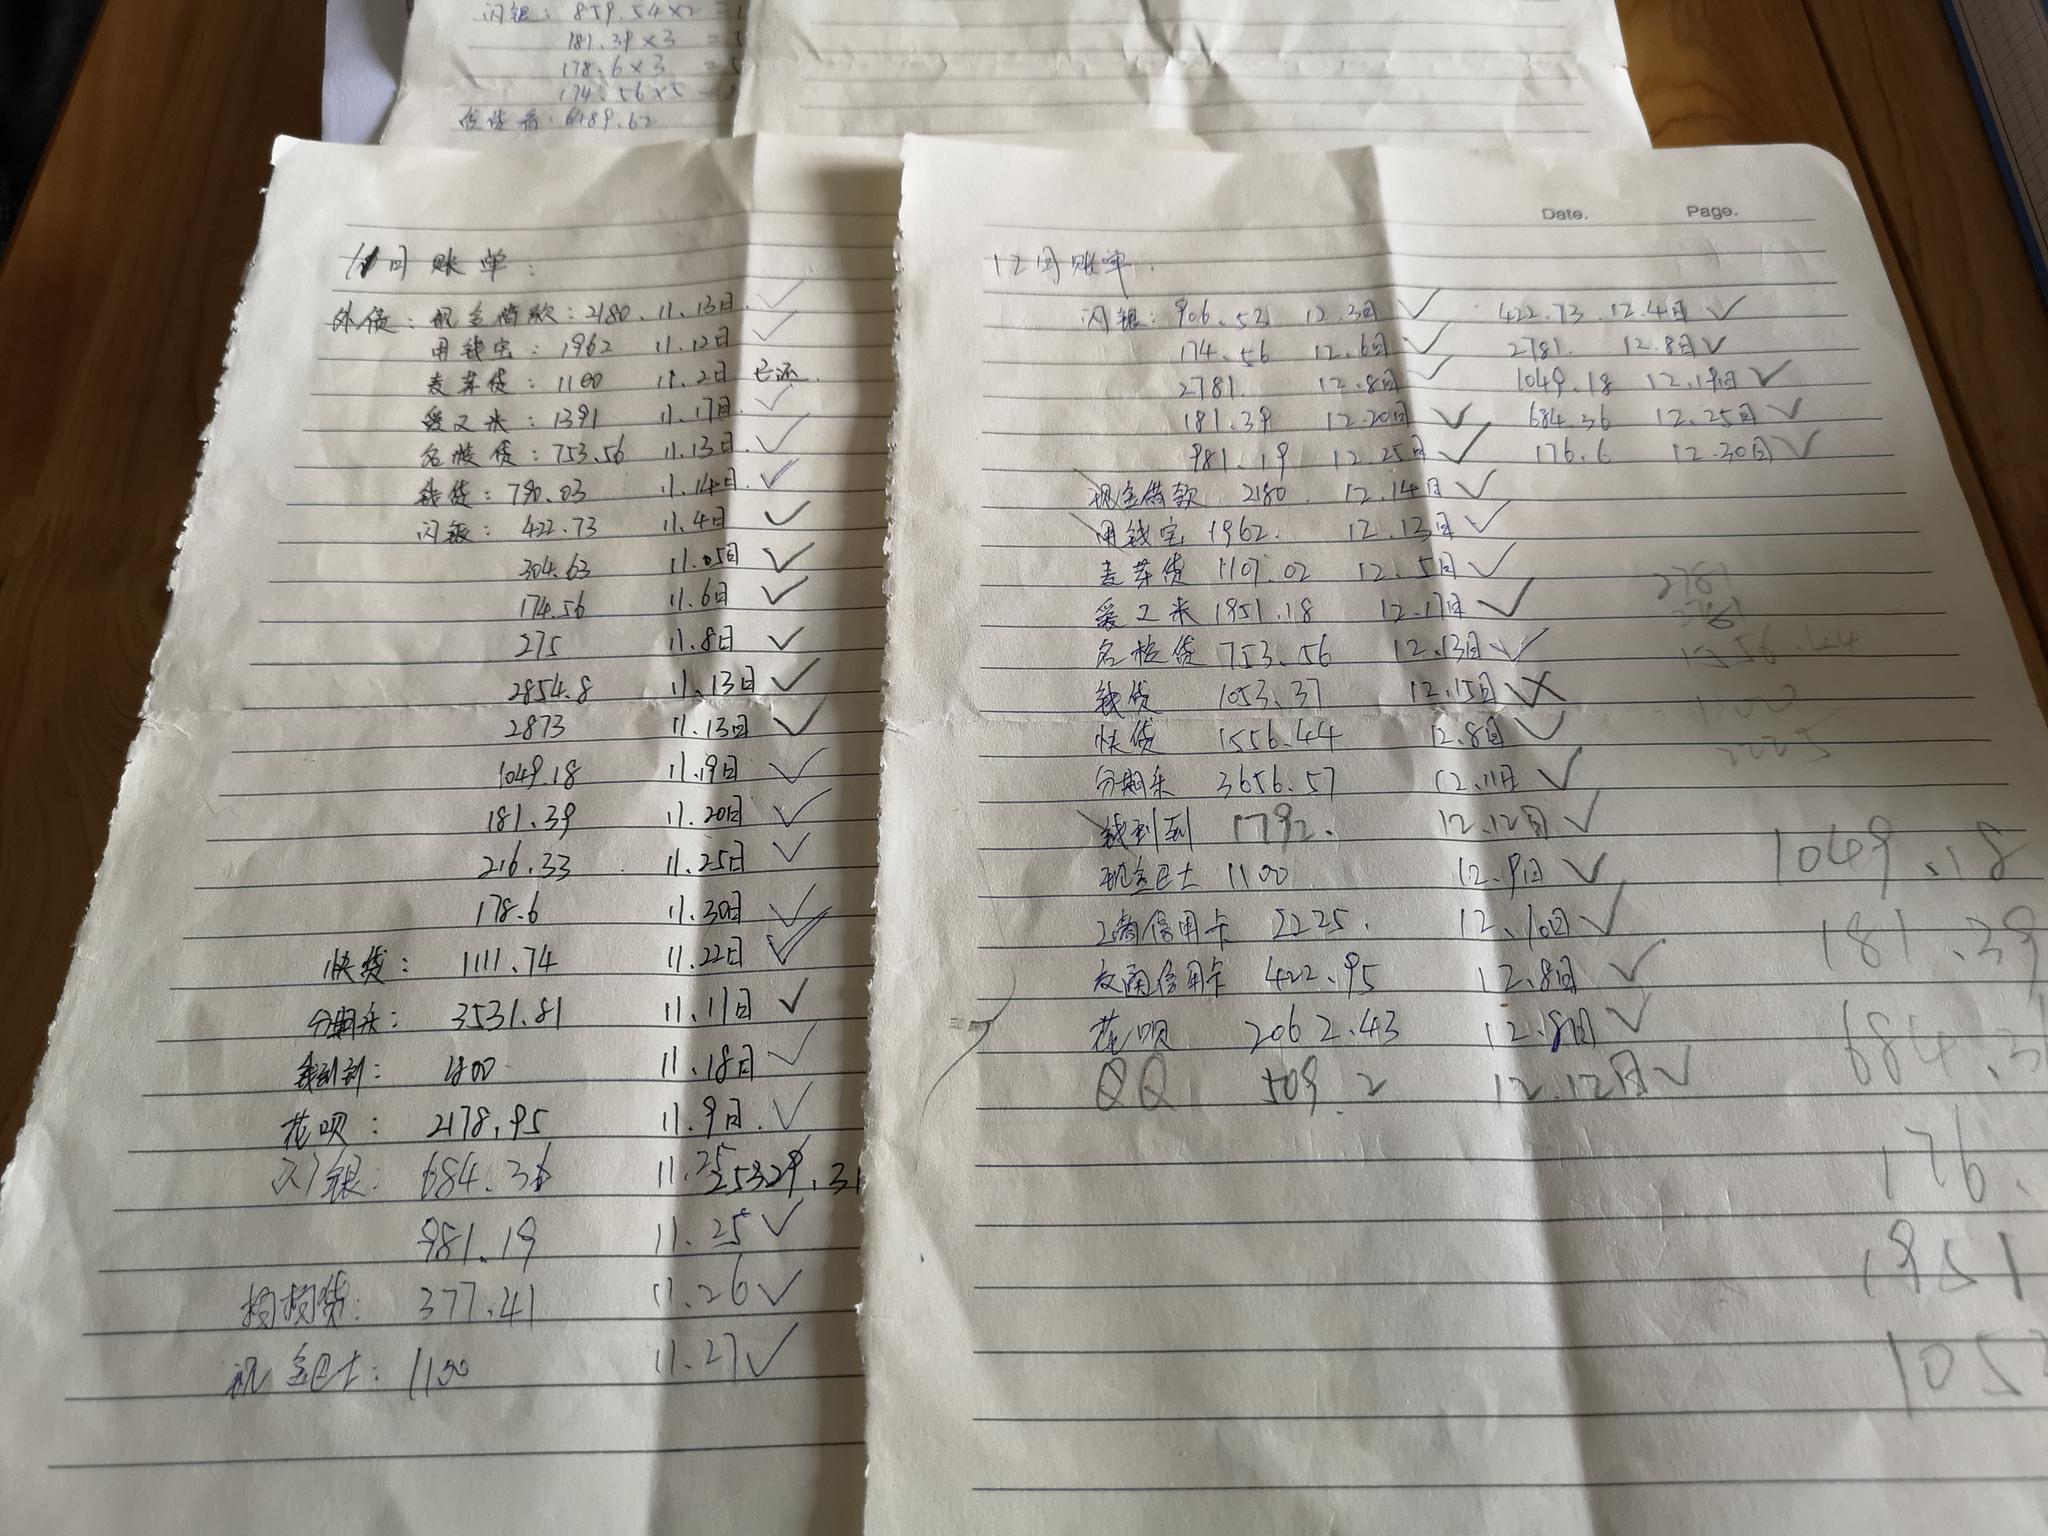 闪银: 859.54×2 =
181.39×3 =
178.6×3 =
174.56×5
6489.62
11月账单:
外债: 现金借款: 2180. 11.13日 ✓
用钱宝: 1962 11.12日 ✓
麦芽贷: 1100 11.2日 已还.
爱又米: 1391 11.17日 ✓
名校贷: 753.56 11.13日 ✓
钱贷: 790.03 11.14日 ✓
闪银: 422.73 11.4日 ✓
304.63 11.05日 ✓
174.56 11.6日 ✓
275 11.8日 ✓
2854.8 11.13日 ✓
2873 11.13日 ✓
1049.18 11.19日 ✓
181.39 11.20日 ✓
216.33 11.25日 ✓
178.6 11.30日 ✓
快贷: 1111.74 11.22日 ✓
分期乐: 3531.81 11.11日 ✓
钱到到: 1800 11.18日 ✓
花呗: 2178.95 11.9日. ✓
闪银: 684.36 11.25 25329.31
981.19 11.25 ✓
拘拘贷: 377.41 11.26 ✓
现金巴士: 1100 11.27 ✓
Date. Page.
12月账单.
闪银: 906.52 12.3日 ✓ 422.73 12.4日 ✓
174.56 12.6日 ✓ 2781. 12.8日 ✓
2781. 12.8日 ✓ 1049.18 12.19日 ✓
181.39 12.20日 ✓ 684.36 12.25日 ✓
981.19 12.25日 ✓ 176.6 12.30日 ✓
现金借款 2180. 12.14日 ✓
用钱宝 1962. 12.13日 ✓
麦芽贷 1107.02 12.5日 ✓
爱又米 1951.18 12.17日 ✓
名校贷 753.56 12.13日 ✓
钱贷 1053.37 12.15日
快贷 1556.44 12.8日 ✓
分期乐 3656.57 12.11日 ✓
钱到到 1792. 12.12日 ✓
现金巴士 1100 12.9日 ✓
工商信用卡 2225. 12.10日 ✓
交通信用卡 422.95 12.8日 ✓
花呗 2062.43 12.8日 ✓
QQ 509.2 12.12日 ✓
2781
2781
1556.44
1100
2225
1049.18
181.39
684.3
176.
1951
105